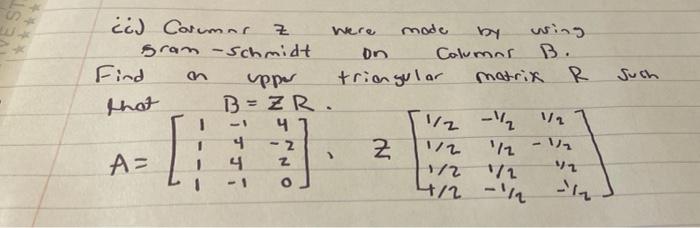 ii) Columns Z were made by using
gram-schmidt on Columns B.
Find an upper triangular matrix R such
that B = Z R.
A = [ 1 -1 4 ; 1 4 -2 ; 1 4 2 ; 1 -1 0 ] , Z [ 1/2 -1/2 1/2 ; 1/2 1/2 -1/2 ; 1/2 1/2 1/2 ; 1/2 -1/2 -1/2 ]